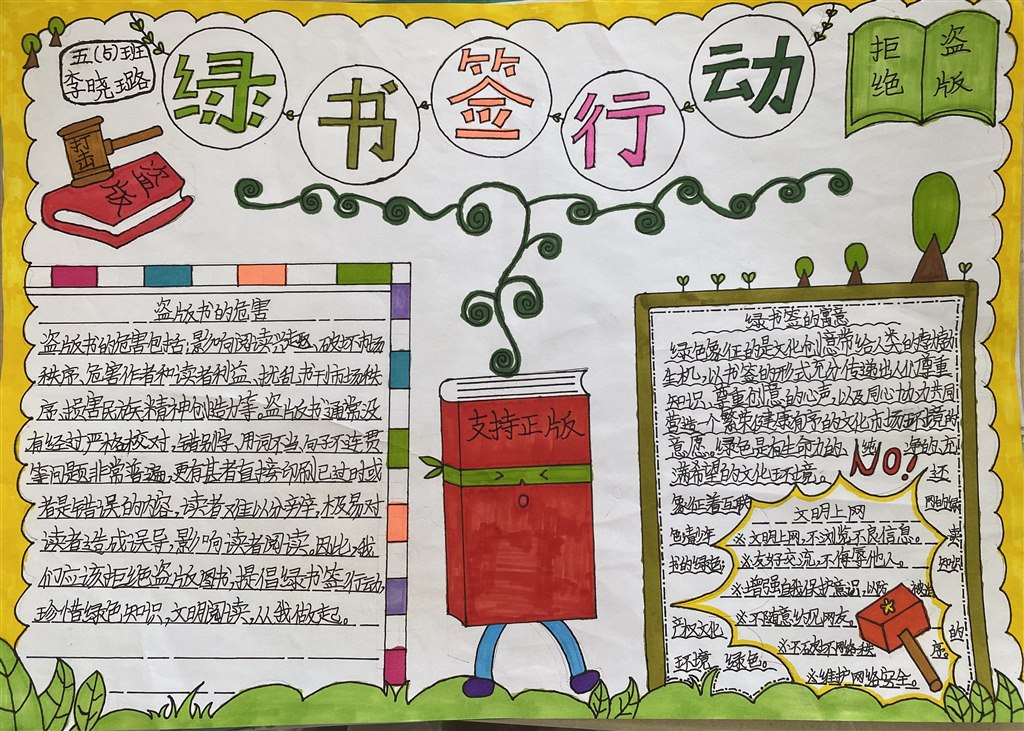 五(5)班
李晓璐
绿书签行动
拒绝
盗版
打击
盗版
盗版书的危害
盗版书的危害包括:影响阅读兴趣、破坏市场
秩序、危害作者和读者利益、扰乱书刊市场秩
序、损害民族精神创造力等。盗版书通常没
有经过严格校对,错别字、用词不当、句子不连贯
等问题非常普遍,更有甚者直接印刷已过时或
者是错误的内容,读者难以分辨,极易对
读者造成误导,影响读者阅读。因此,我
们应该拒绝盗版图书,提倡绿书签行动
珍惜绿色知识,文明阅读,从我做起。
支持正版
绿书签的寓意
绿色象征的是文化创意带给人类的
生机,以书签的形式充分传递出人们尊重
知识、尊重创意的心声,以及同心协力共同
营造一个繁荣健康有序的文化市场环境的
意愿。绿色是有生命力的、纯净的、充
满希望的文化环境。
NO!
还
象征着互联
网的绿
色
书的绿色
知识
产权文化
的
环境 绿色。
文明上网
※文明上网,不浏览不良信息。
※友好交流,不侮辱他人。
※增强自我保护意识,
※不随意约见网友。
※不破坏网络秩
序。
※维护网络安全。